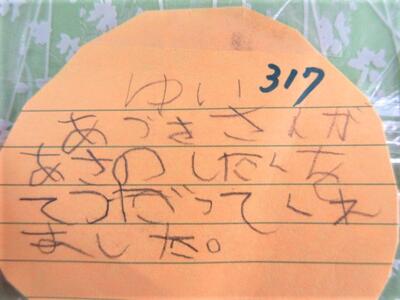 ゆい 317
あづささんが
あさのしたくを
てつだってくれ
ました。